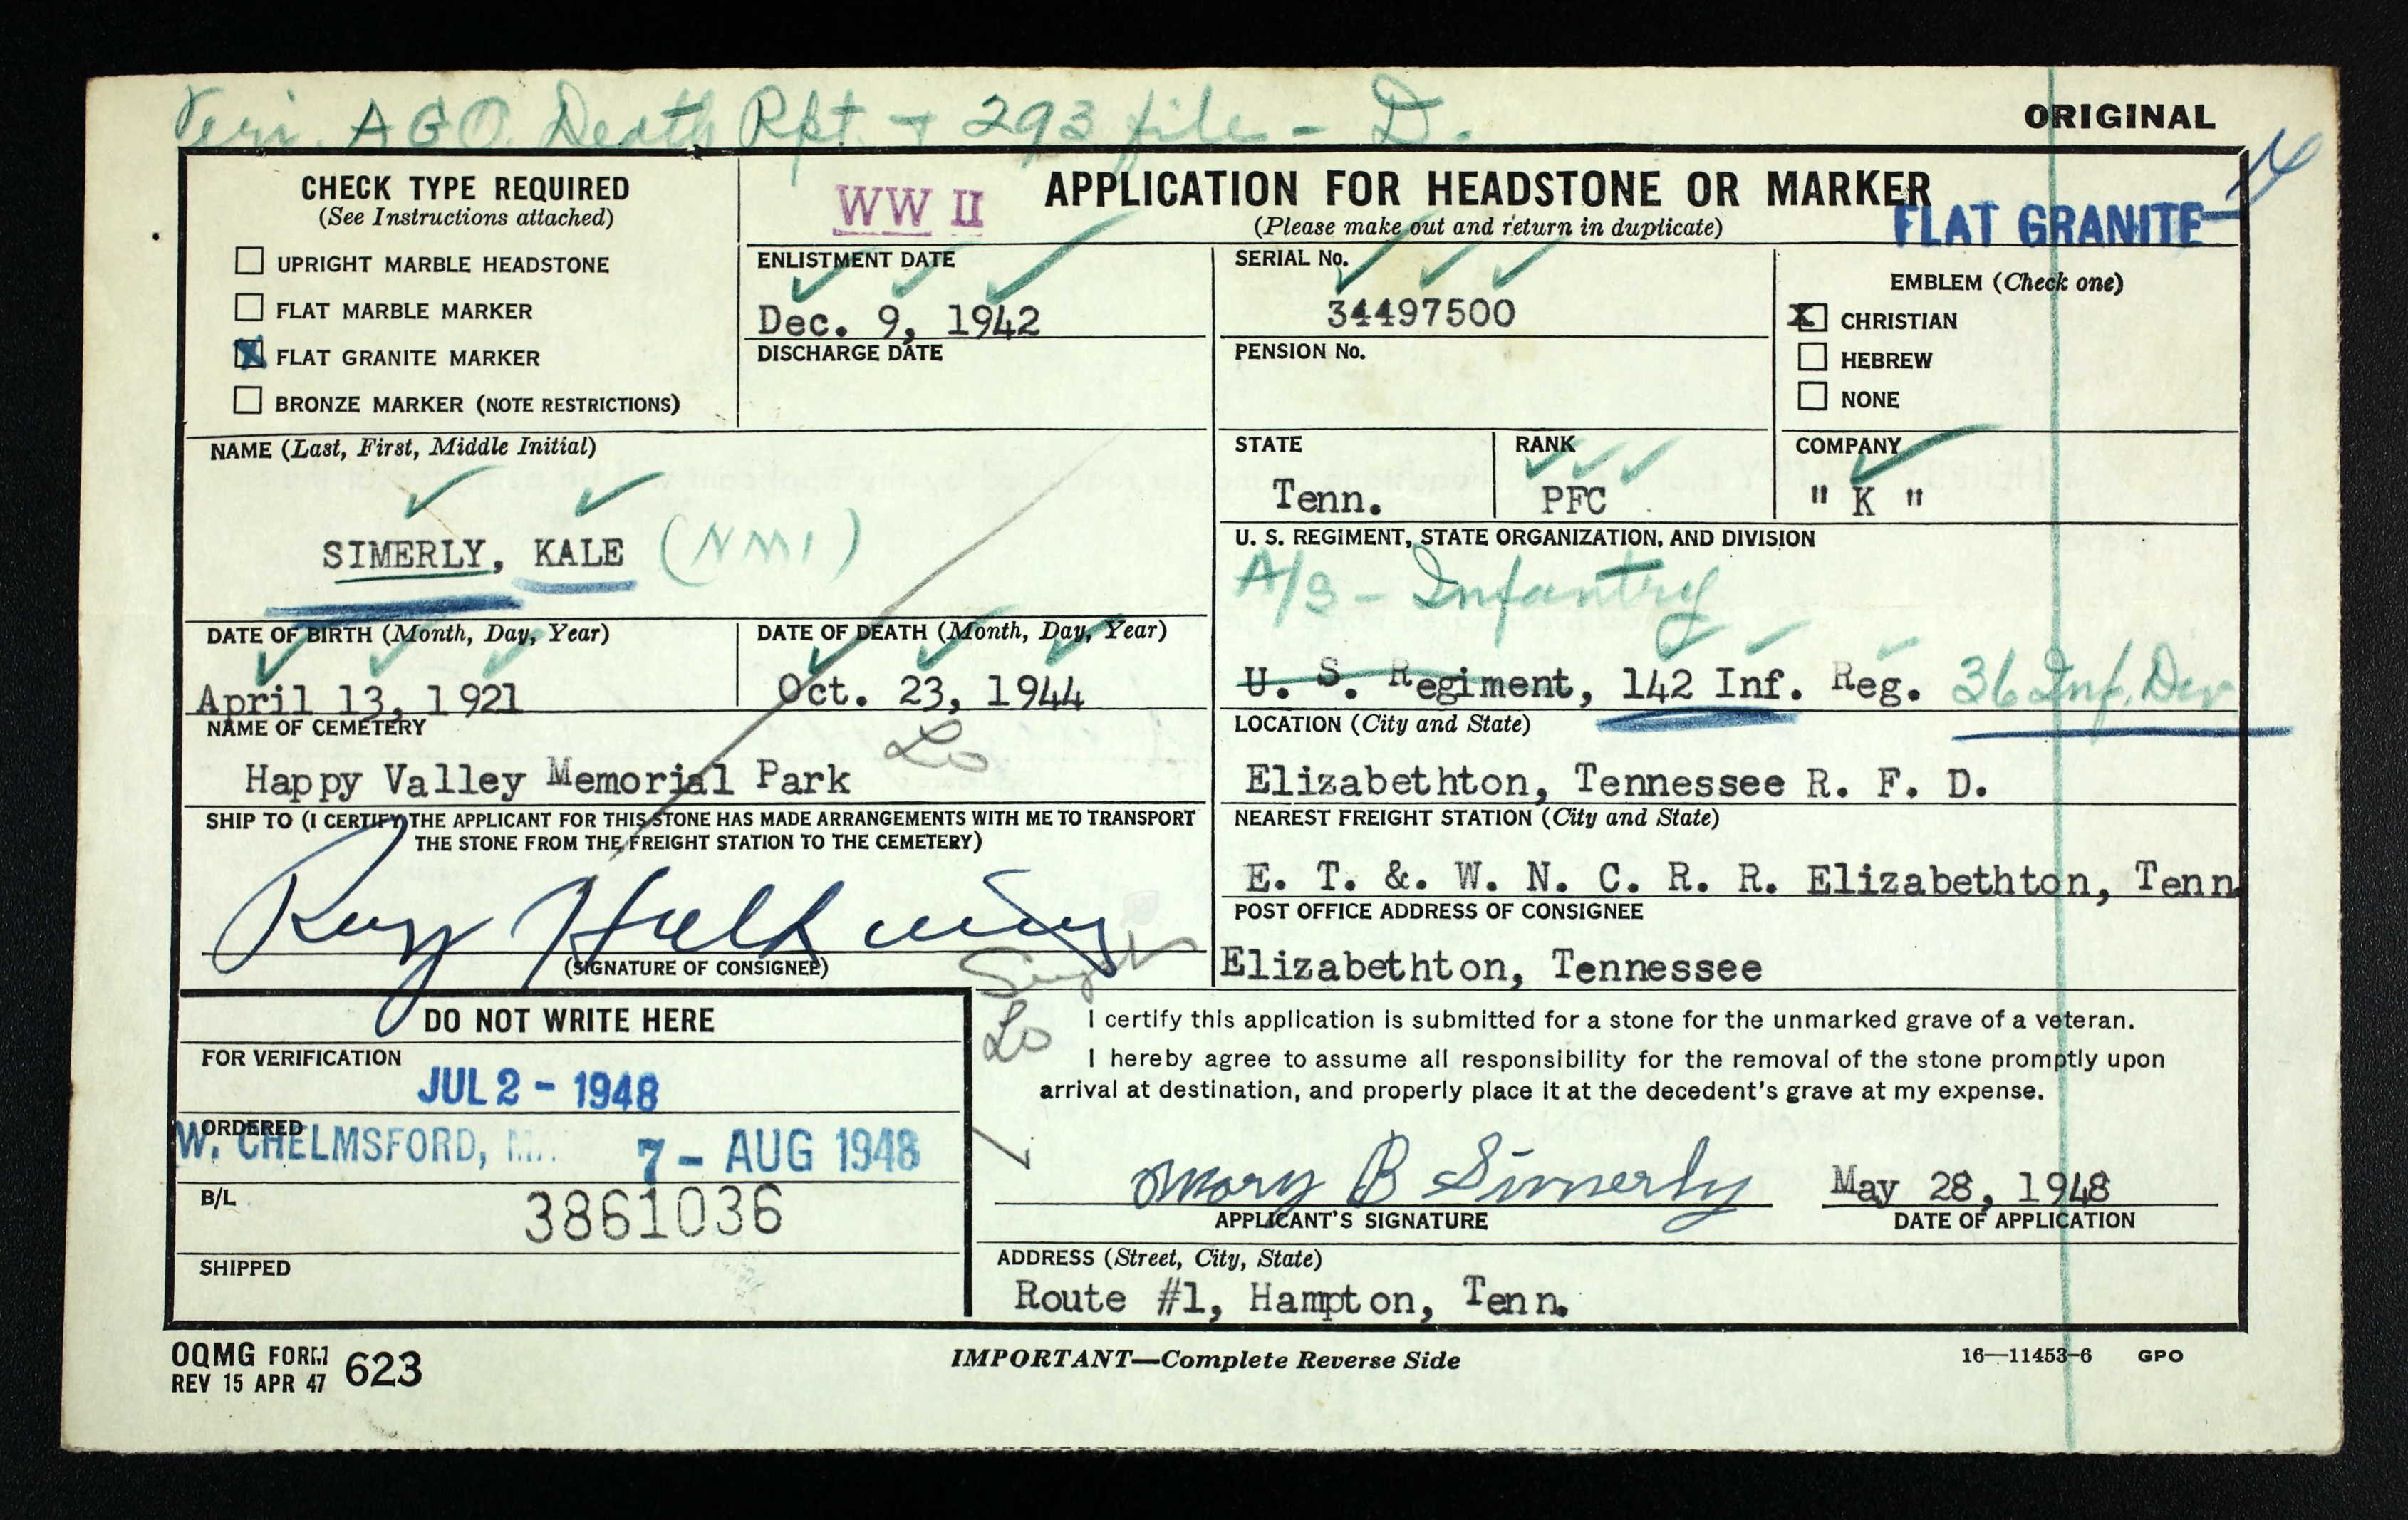 Veri. AGO. Death Rpt. + 293 file - D.
ORIGINAL
CHECK TYPE REQUIRED
(See Instructions attached)
UPRIGHT MARBLE HEADSTONE
FLAT MARBLE MARKER
X FLAT GRANITE MARKER
BRONZE MARKER (NOTE RESTRICTIONS)
WW II
APPLICATION FOR HEADSTONE OR MARKER
(Please make out and return in duplicate)
FLAT GRANITE
ENLISTMENT DATE
Dec. 9, 1942
DISCHARGE DATE
SERIAL No.
34497500
PENSION No.
EMBLEM (Check one)
X CHRISTIAN
HEBREW
NONE
NAME (Last, First, Middle Initial)
SIMERLY, KALE (NMI)
STATE
Tenn.
RANK
PFC
COMPANY
" K "
U. S. REGIMENT, STATE ORGANIZATION, AND DIVISION
A/S - Infantry
U. S. Regiment, 142 Inf. Reg. 36 Inf. Div
DATE OF BIRTH (Month, Day, Year)
April 13, 1921
DATE OF DEATH (Month, Day, Year)
Oct. 23, 1944
NAME OF CEMETERY
Happy Valley Memorial Park
Lo
LOCATION (City and State)
Elizabethton, Tennessee R. F. D.
SHIP TO (I CERTIFY THE APPLICANT FOR THIS STONE HAS MADE ARRANGEMENTS WITH ME TO TRANSPORT
THE STONE FROM THE FREIGHT STATION TO THE CEMETERY)
(SIGNATURE OF CONSIGNEE)
NEAREST FREIGHT STATION (City and State)
E. T. &. W. N. C. R. R. Elizabethton, Tenn.
POST OFFICE ADDRESS OF CONSIGNEE
Elizabethton, Tennessee
DO NOT WRITE HERE
FOR VERIFICATION
JUL 2 - 1948
ORDERED
W. CHELMSFORD, 7 - AUG 1948
B/L
3861036
SHIPPED
Lo
I certify this application is submitted for a stone for the unmarked grave of a veteran.
I hereby agree to assume all responsibility for the removal of the stone promptly upon
arrival at destination, and properly place it at the decedent's grave at my expense.
Mary B Simerly
APPLICANT'S SIGNATURE
May 28, 1948
DATE OF APPLICATION
ADDRESS (Street, City, State)
Route #1, Hampton, Tenn.
OQMG FORM 623
REV 15 APR 47
IMPORTANT—Complete Reverse Side
16—11453-6 GPO